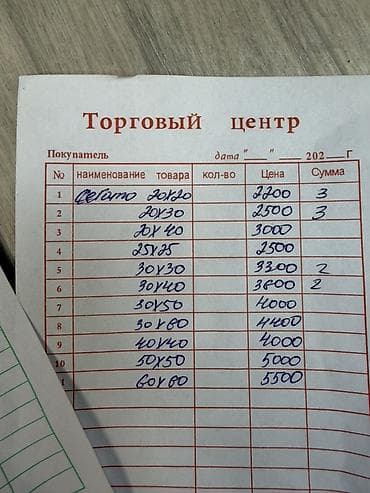 Торговый центр
Покупатель дата "__" ____ 202__ г
№ наименование товара кол-во Цена Сумма
1 20x20 2200 3
2 20x30 2500 3
3 20x40 3000
4 25x25 2500
5 30x30 3300 2
6 30x40 3800 2
7 30x50 4000
8 30x60 4400
9 40x40 4000
10 50x50 5000
60x60 5500